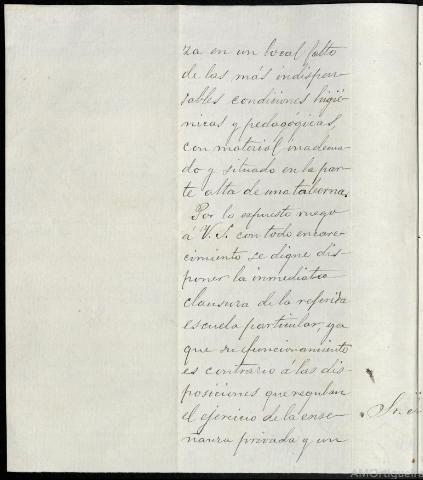 za en un local falto
de las más indispen-
sables condiciones higié-
nicas y pedagógicas,
con material inadecua-
do y situado en la par-
te alta de una taberna.
Por lo expuesto ruego
á V. S. con todo encare-
cimiento se digne dis-
poner la inmediata
clausura de la referida
escuela particular, ya
que su funcionamiento
es contrario á las dis-
posiciones que regulan
el ejercicio de la ense-
ñanza privada y un
Sr.
AMOrtigueira